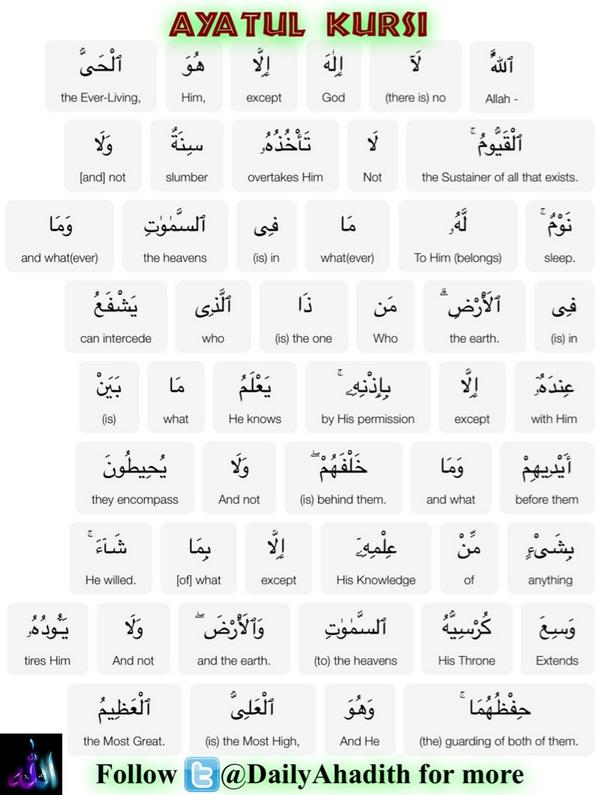 AYATUL KURSI
ٱللَّهُ لَآ إِلَٰهَ إِلَّا هُوَ ٱلْحَىُّ
Allah - (there is) no God except Him, the Ever-Living,
ٱلْقَيُّومُ ۚ لَا تَأْخُذُهُۥ سِنَةٌ وَلَا
the Sustainer of all that exists. Not overtakes Him slumber [and] not
نَوْمٌ ۚ لَّهُۥ مَا فِى ٱلسَّمَٰوَٰتِ وَمَا
sleep. To Him (belongs) what(ever) (is) in the heavens and what(ever)
فِى ٱلْأَرْضِ ۗ مَن ذَا ٱلَّذِى يَشْفَعُ
(is) in the earth. Who (is) the one who can intercede
عِندَهُۥٓ إِلَّا بِإِذْنِهِۦ ۚ يَعْلَمُ مَا بَيْنَ
with Him except by His permission He knows what (is)
أَيْدِيهِمْ وَمَا خَلْفَهُمْ ۖ وَلَا يُحِيطُونَ
before them and what (is) behind them. And not they encompass
بِشَىْءٍ مِّنْ عِلْمِهِۦٓ إِلَّا بِمَا شَآءَ ۚ
anything of His Knowledge except [of] what He willed.
وَسِعَ كُرْسِيُّهُ ٱلسَّمَٰوَٰتِ وَٱلْأَرْضَ ۖ وَلَا يَـُٔودُهُۥ
Extends His Throne (to) the heavens and the earth. And not tires Him
حِفْظُهُمَا ۚ وَهُوَ ٱلْعَلِىُّ ٱلْعَظِيمُ
(the) guarding of both of them. And He (is) the Most High, the Most Great.
الله
Follow @DailyAhadith for more